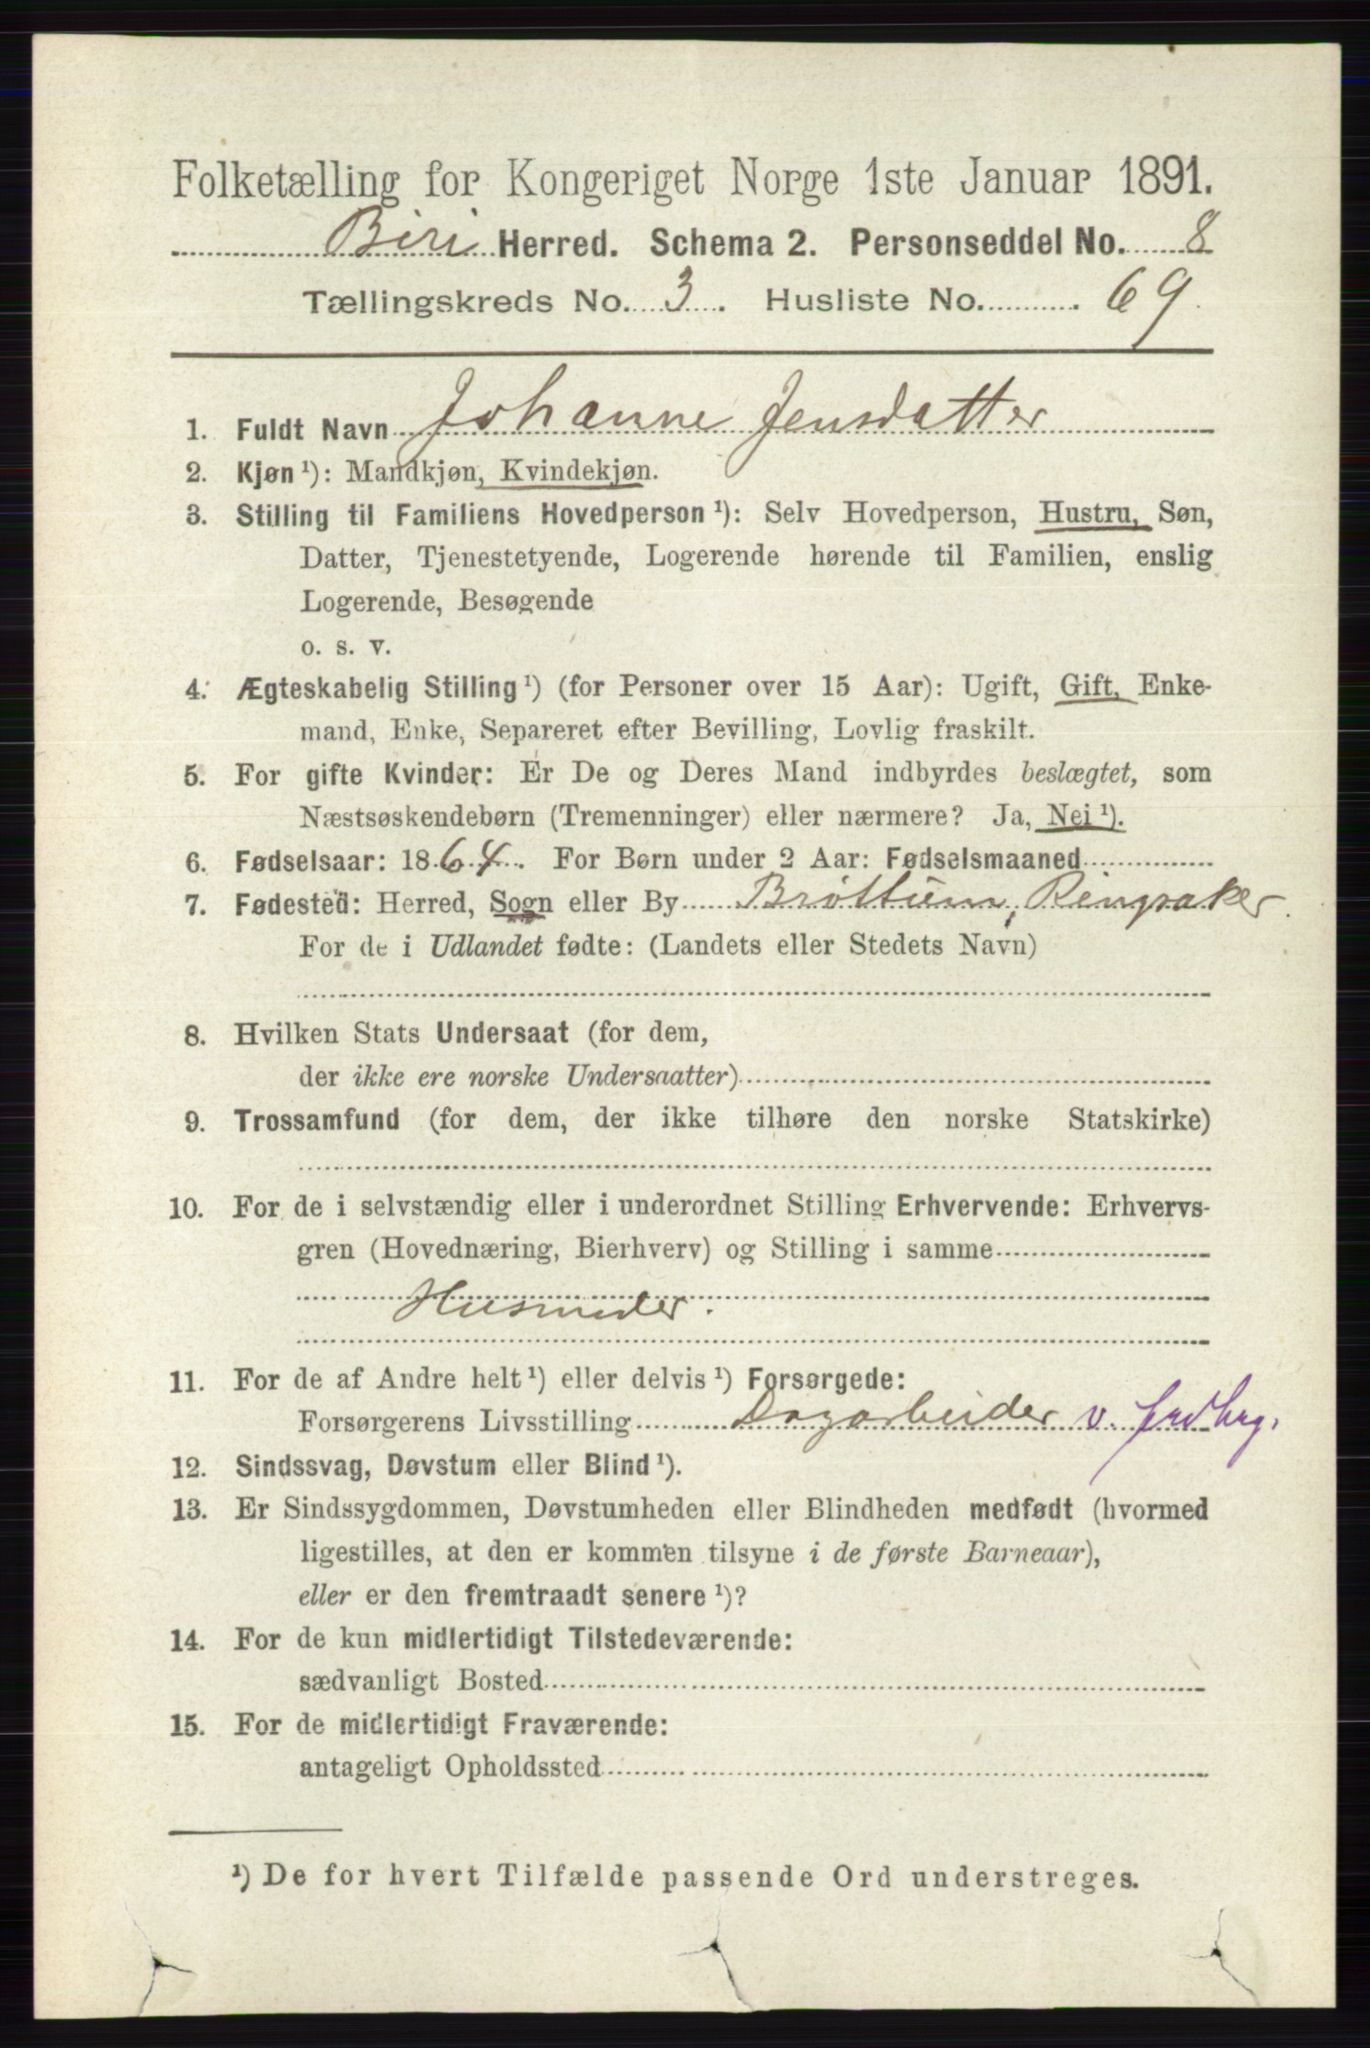 Folketælling for Kongeriget Norge 1ste Januar 1891.
Biri Herred. Schema 2. Personseddel No. 8
Tællingskreds No. 3. Husliste No. 69.
1. Fuldt Navn Johanne Jensdatter
2. Kjøn ¹): Mandkjøn, Kvindekjøn.
3. Stilling til Familiens Hovedperson ¹): Selv Hovedperson, Hustru, Søn,
Datter, Tjenestetyende, Logerende hørende til Familien, enslig
Logerende, Besøgende
o. s. v.
4. Ægteskabelig Stilling ¹) (for Personer over 15 Aar): Ugift, Gift, Enke-
mand, Enke, Separeret efter Bevilling, Lovlig fraskilt.
5. For gifte Kvinder: Er De og Deres Mand indbyrdes beslægtet, som
Næstsøskendebørn (Tremenninger) eller nærmere? Ja, Nei ¹).
6. Fødselsaar: 1864. For Børn under 2 Aar: Fødselsmaaned
7. Fødested: Herred, Sogn eller By Brøttum, Ringsaker.
For de i Udlandet fødte: (Landets eller Stedets Navn)
8. Hvilken Stats Undersaat (for dem,
der ikke ere norske Undersaatter)
9. Trossamfund (for dem, der ikke tilhøre den norske Statskirke)
10. For de i selvstændig eller i underordnet Stilling Erhvervende: Erhvervs-
gren (Hovednæring, Bierhverv) og Stilling i samme
Husmoder.
11. For de af Andre helt ¹) eller delvis ¹) Forsørgede:
Forsørgerens Livsstilling Dagarbeider v. jordbrug.
12. Sindssvag, Døvstum eller Blind ¹).
13. Er Sindssygdommen, Døvstumheden eller Blindheden medfødt (hvormed
ligestilles, at den er kommen tilsyne i de første Barneaar),
eller er den fremtraadt senere ¹)?
14. For de kun midlertidigt Tilstedeværende:
sædvanligt Bosted
15. For de midlertidigt Fraværende:
antageligt Opholdssted
¹) De for hvert Tilfælde passende Ord understreges.